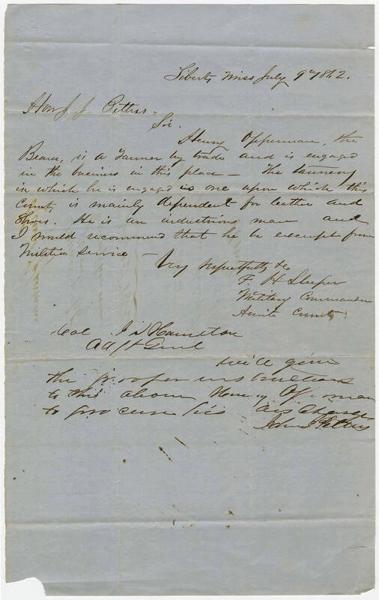 Liberty Miss July 9th 1862.
Hon J. J. Pettus.
Sir.
Henry Opperman, the
Bearer, is a Tanner by trade and is engaged
in the business in this place — The tannery
in which he is engaged is one upon which this
County is mainly dependent for leather and
Shoes. He is an industrious man and
I would recommend that he be exempt from
Militia service —
Very respectfully &c
F H Sleeper
Military Commander
Amite County
Col J Hamilton
Adjt Genl
will give
the prooper instructions
to the above Henry Opperman
to procure his discharge
John J Pettus